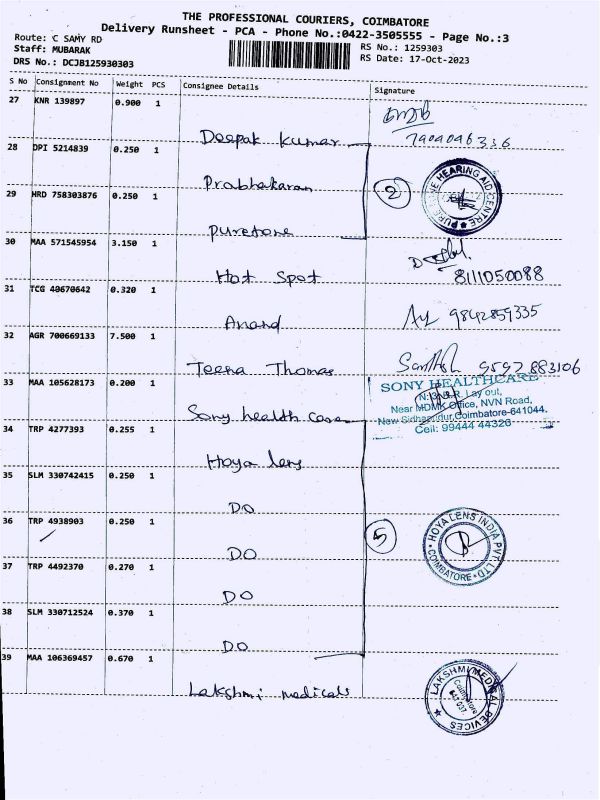 THE PROFESSIONAL COURIERS, COIMBATORE
Delivery Runsheet - PCA - Phone No.:0422-3505555 - Page No.:3
Route: C SAMY RD
RS No.: 1259303
Staff: MUBARAK
RS Date: 17-Oct-2023
DRS No.: DCJB125930303
S No Consignment No Weight PCS Consignee Details Signature
27 KNR 139897 0.900 1
Deepak kumar 7904046336
28 DPI 5214839 0.250 1
Prabhakaran
29 HRD 758303876 0.250 1
Puretone
2
PURETONE HEARING AID CENTRE
30 MAA 571545954 3.150 1
Hot Spot 8111050088
31 TCG 40670642 0.320 1
Anand 9842859335
32 AGR 700669133 7.500 1
Teena Thomas Santhosh 9597883106
33 MAA 105628173 0.200 1
Sony health care
SONY HEALTHCARE
Lay out,
Near MDMK Office, NVN Road,
New Sidhapudur, Coimbatore-641044.
Cell: 99444 44326
34 TRP 4277393 0.255 1
Hoya lens
35 SLM 330742415 0.250 1
DO
36 TRP 4938903 0.250 1
DO
5
HOYA LENS INDIA PVT. LTD
COIMBATORE
37 TRP 4492370 0.270 1
DO
38 SLM 330712524 0.370 1
DO
39 MAA 106369457 0.670 1
Lakshmi medicals
LAKSHMI MEDICAL DEVICES
Coimbatore